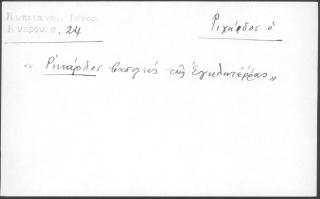 Κυπριανού. Ιστορ.
Κύπρου. σ. 24
Ριχάρδος ὁ
« Ρικάρδος βασιλεὺς τῆς Ἐγκλιτέρρας »